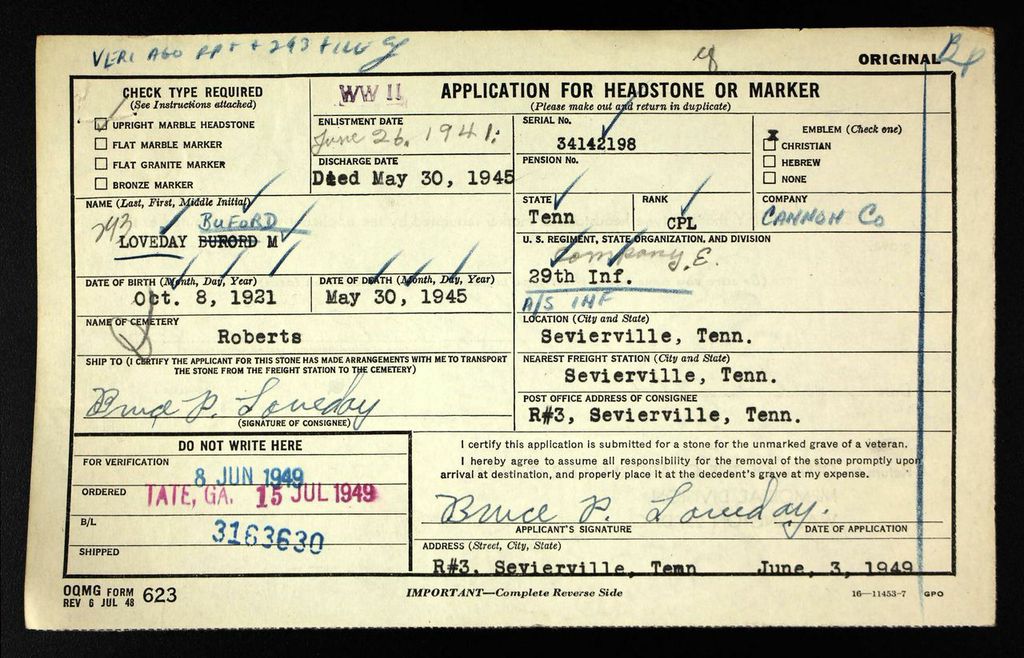 VERI AGO PPT + 293 FILE
ORIGINAL
CHECK TYPE REQUIRED
(See Instructions attached)
UPRIGHT MARBLE HEADSTONE
FLAT MARBLE MARKER
FLAT GRANITE MARKER
BRONZE MARKER
WW II
APPLICATION FOR HEADSTONE OR MARKER
(Please make out and return in duplicate)
ENLISTMENT DATE
June 26, 1941.
DISCHARGE DATE
Died May 30, 1945
SERIAL No.
34142198
PENSION No.
EMBLEM (Check one)
X
CHRISTIAN
HEBREW
NONE
NAME (Last, First, Middle Initial)
293
BUFORD
LOVEDAY BURORD M
STATE
Tenn
RANK
CPL
COMPANY
CANNON CO
U. S. REGIMENT, STATE ORGANIZATION, AND DIVISION
Company E.
29th Inf.
A/S INF
DATE OF BIRTH (Month, Day, Year)
Oct. 8, 1921
DATE OF DEATH (Month, Day, Year)
May 30, 1945
NAME OF CEMETERY
Roberts
LOCATION (City and State)
Sevierville, Tenn.
SHIP TO (I CERTIFY THE APPLICANT FOR THIS STONE HAS MADE ARRANGEMENTS WITH ME TO TRANSPORT
THE STONE FROM THE FREIGHT STATION TO THE CEMETERY)
Bruce P. Loveday
(SIGNATURE OF CONSIGNEE)
NEAREST FREIGHT STATION (City and State)
Sevierville, Tenn.
POST OFFICE ADDRESS OF CONSIGNEE
R#3, Sevierville, Tenn.
DO NOT WRITE HERE
FOR VERIFICATION
8 JUN 1949
ORDERED
TATE, GA. 15 JUL 1949
B/L
3163630
SHIPPED
I certify this application is submitted for a stone for the unmarked grave of a veteran.
I hereby agree to assume all responsibility for the removal of the stone promptly upon
arrival at destination, and properly place it at the decedent's grave at my expense.
Bruce P. Loveday.
APPLICANT'S SIGNATURE
DATE OF APPLICATION
ADDRESS (Street, City, State)
R#3, Sevierville, Tenn June, 3, 1949
OQMG FORM
REV 6 JUL 48
623
IMPORTANT—Complete Reverse Side
16—11453-7 GPO